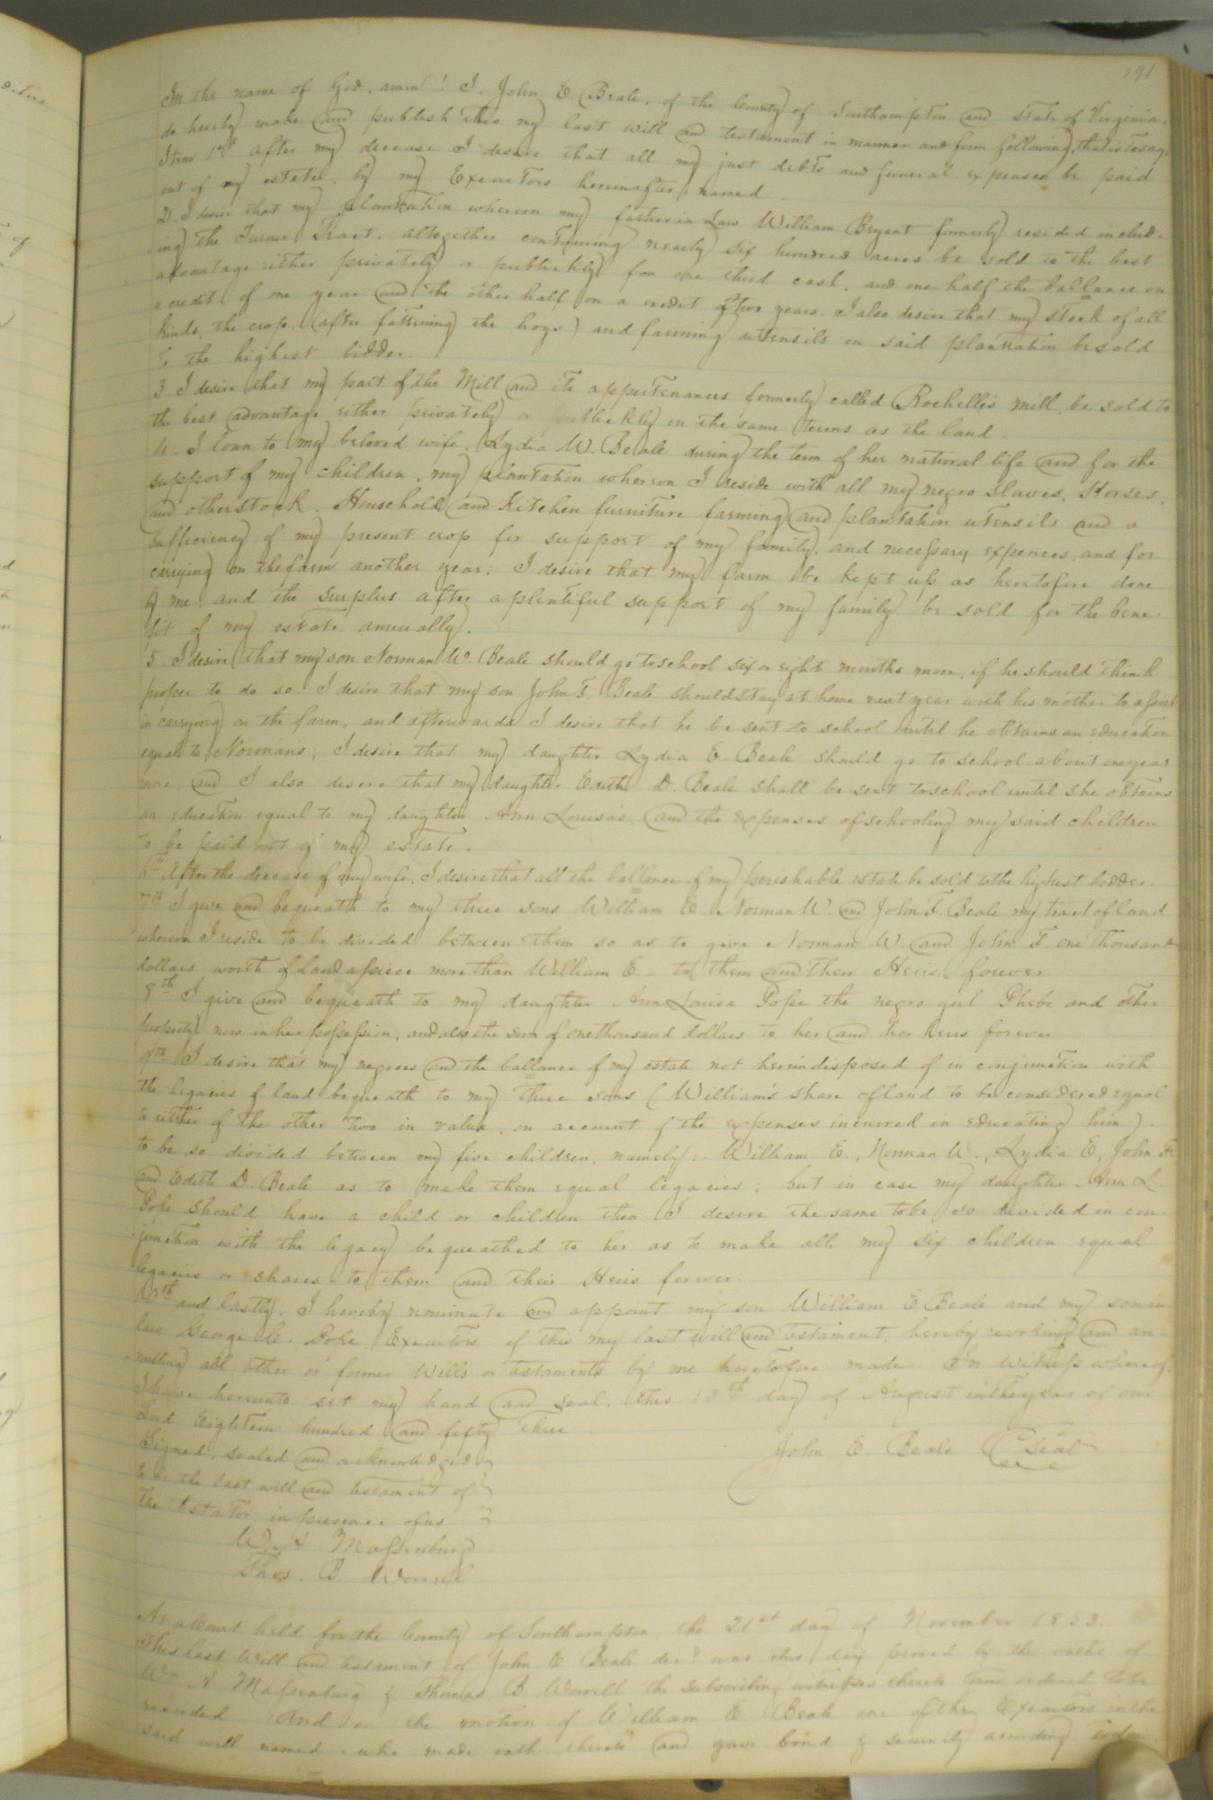 191
In the name of God, amen! I. John E Beale, of the County of Southampton and State of Virginia.
do hereby make and publish this my last will and testament in manner and form following, that is to say,
Item 1st After my decease I desire that all my just debts and funeral expenses be paid
out of my estate by my Executors hereinafter named.
2 I desire that my plantation whereon my father in Law William Bryant formerly resided includ-
ing the Turner Tract. altogether containing nearly six hundred acres be sold to the best
advantage either privately or publickly for one third cash, and one half the ballance on
a credit of one year and the other half on a credit of two years. I also desire that my stock of all
kinds, the crop, (after fattning the hogs) and farming utensils on said plantation be sold
to the highest bidder.
3 I desire that my part of the Mill and its appertenances formerly called Rochelle's mill be sold to
the best advantage either privately or publickly on the same terms as the land
4. I loan to my beloved wife. Lydia W. Beale during the term of her natural life and for the
support of my children, my plantation whereon I reside with all my negro slaves, Horses,
and other stock. Household and Kitchen furniture farming and plantation utensils and a
sufficiency of my present crop for support of my family, and necessary expences, and for
carrying on the farm another year: I desire that my farm be kept up as heretofore done
by me. and the surplus after a plentiful support of my family be sold for the bene-
fit of my estate annually.
5 I desire that my son Norman W. Beale should go to school six or eight months more, if he should think
proper to do so. I desire that my son John F. Beale should stay at home next year with his mother to assist
in carrying on the farm, and afterwards I desire that he be sent to school until he obtains an education
equal to Normans; I desire that my daughter Lydia E Beale should go to school about one year
more and I also desire that my daughter Edith D. Beale shall be sent to school until she obtains
an education equal to my daughter Ann Louisas and the expenses of schooling my said children
to be paid out of my estate.
6th After the decease of my wife, I desire that all the ballance of my perishable estate be sold to the highest bidder
7th I give and bequeath to my three sons William E. Norman W. and John F. Beale my tract of land
whereon I reside to be divided between them so as to give Norman W. and John F. one thousand
dollars worth of land apiece more than William E - to them and their Heirs forever
8th I give and bequeath to my daughter Ann Louisa Pope the negro girl Phebe and other
property now in her possession, and also the sum of one thousand dollars to her and her heirs forever
9th I desire that my negroes and the ballance of my estate not herein disposed of in conjunction with
the legacies of land bequeath to my three sons (William's share of land to be considered equal
to either of the other two in value, on account of the expenses incurred in educating him).
to be so divided between my five children, namely: William E., Norman W., Lydia E, John F.
and Edith D Beale as to make them equal legacies; but in case my daughter Ann L.
Pope should have a child or children then I desire the same to be so divided in con-
junction with the legacy bequeathed to her as to make all my six children equal
legacies or shares to them and their Heirs forever.
10th and lastly. I hereby nominate and appoint my son William E Beale and my son in
law George Pope Executors of this my last will and testament, hereby revoking and an-
nulling all other or former Wills or testaments by me heretofore made In witness whereof
I have hereunto set my hand and seal, this 13th day of August in the year of our
Lord Eighteen hundred and fifty three
John E. Beale Seal
Signed, sealed and acknowledged
to be the last will and testament of
the testator in presence of us
W. A Massenburg
Thos. B Worrell
At a Court held for the County of Southampton, the 21st day of November 1853.
This last Will and testament of John E Beale decd was this day proved by the oaths of
Wm A Massenburg & Thomas B Worrell the subscribing witnesses thereto and ordered to be
recorded And on the motion of William E Beale one of the Executors in the
said will named who made oath thereto and gave bond & security according to law